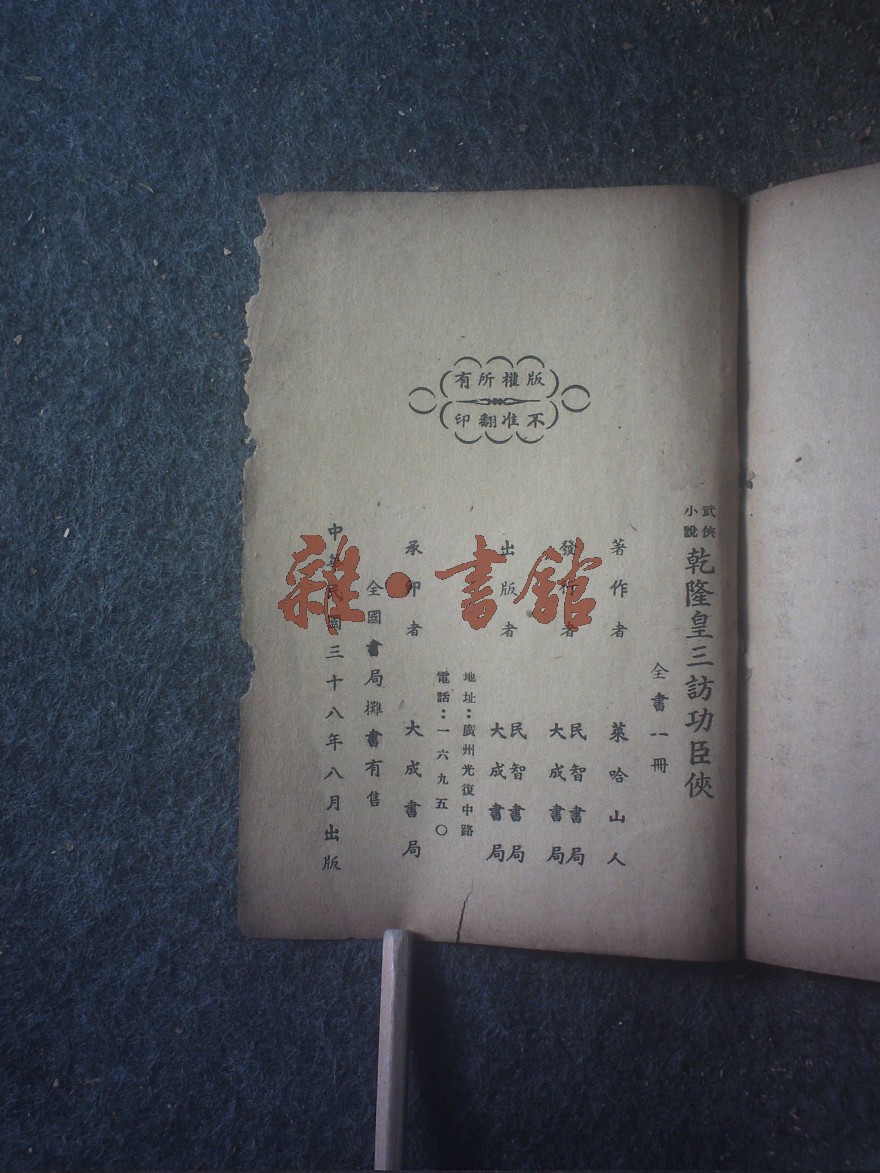 版權所有
不准翻印
武俠小說
乾隆皇三訪功臣俠
全書一冊
著作者 萊哈山人
發行者 民智書局 大成書局
出版者 民智書局 大成書局
地址：廣州光復中路
電話：一六九五〇
承印者 大成書局
全國書局攤書有售
中華民國三十八年八月出版
雜·書館